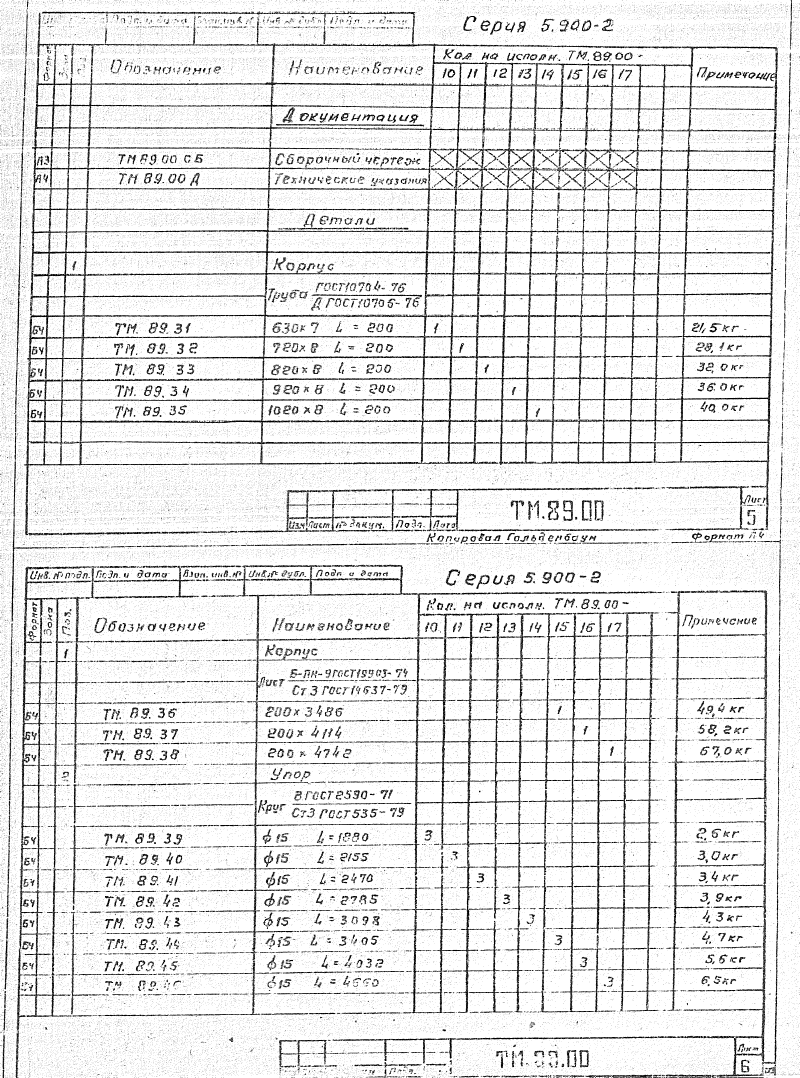 Инв. № подл. Подп. и дата Взам. инв. № Инв. № дубл. Подп. и дата
Серия 5.900-2
Формат Зона Поз. Обозначение Наименование Кол. на исполн. ТМ.89.00- Примечание
10 11 12 13 14 15 16 17
Документация
А3 ТМ 89.00 СБ Сборочный чертеж
А4 ТМ 89.00 Д Технические указания
Детали
1 Корпус
Труба ГОСТ10704-76
Д ГОСТ10705-76
БЧ ТМ. 89.31 630×7 L = 200 1 21,5 кг
БЧ ТМ. 89.32 720×8 L = 200 1 28,1 кг
БЧ ТМ. 89.33 820×8 L = 200 1 32,0 кг
БЧ ТМ. 89.34 920×8 L = 200 1 36,0 кг
БЧ ТМ. 89.35 1020×8 L = 200 1 40,0 кг
Изм Лист № докум. Подп. Дата
ТМ.89.00
Лист
5
Копировал Гольденбаум Формат А4
Инв. № подл. Подп. и дата Взам. инв. № Инв. № дубл. Подп. и дата
Серия 5.900-2
Формат Зона Поз. Обозначение Наименование Кол. на исполн. ТМ.89.00- Примечание
10 11 12 13 14 15 16 17
1 Корпус
Лист Б-ПН-9 ГОСТ19903-74
Ст 3 ГОСТ14637-79
БЧ ТМ. 89.36 200×3486 1 49,4 кг
БЧ ТМ. 89.37 200×4114 1 58,2 кг
БЧ ТМ. 89.38 200×4742 1 67,0 кг
2 Упор
Круг В ГОСТ2590-71
Ст3 ГОСТ535-79
БЧ ТМ. 89.39 ϕ15 L=1880 3 2,6 кг
БЧ ТМ. 89.40 ϕ15 L=2155 3 3,0 кг
БЧ ТМ. 89.41 ϕ15 L=2470 3 3,4 кг
БЧ ТМ. 89.42 ϕ15 L=2785 3 3,9 кг
БЧ ТМ. 89.43 ϕ15 L=3098 3 4,3 кг
БЧ ТМ. 89.44 ϕ15 L=3405 3 4,7 кг
БЧ ТМ. 89.45 ϕ15 L=4032 3 5,6 кг
БЧ ТМ. 89.46 ϕ15 L=4660 3 6,5 кг
ТМ.89.00
Лист
6